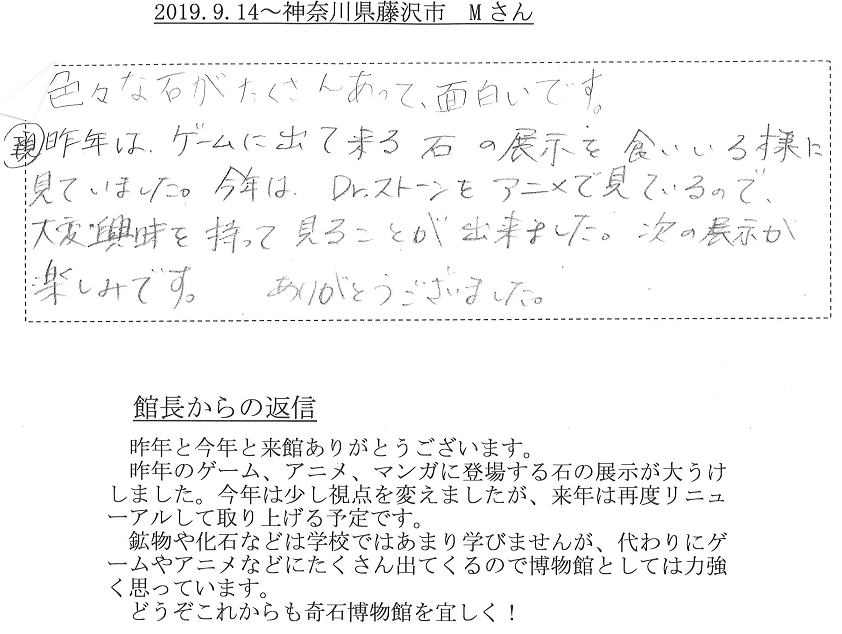 2019.9.14～神奈川県藤沢市　Mさん
色々な石がたくさんあって、面白いです。
親 昨年は、ゲームに出て来る 石 の展示を 食いいる様に
見ていました。今年は、Dr.ストーンを アニメで見ているので、
大変興味を 持って 見ることが 出来ました。次の展示が
楽しみです。　ありがとうございました。
館長からの返信
昨年と今年と来館ありがとうございます。
昨年のゲーム、アニメ、マンガに登場する石の展示が大うけ
しました。今年は少し視点を変えましたが、来年は再度リニュ
ーアルして取り上げる予定です。
鉱物や化石などは学校ではあまり学びませんが、代わりにゲ
ームやアニメなどにたくさん出てくるので博物館としては力強
く思っています。
どうぞこれからも奇石博物館を宜しく！